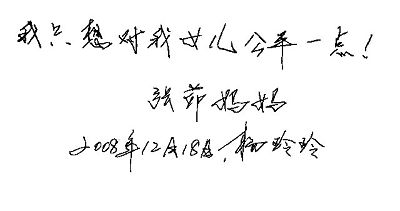 我只想对我女儿公平一点!
张茆妈妈
2008年12月18日,杨玲玲